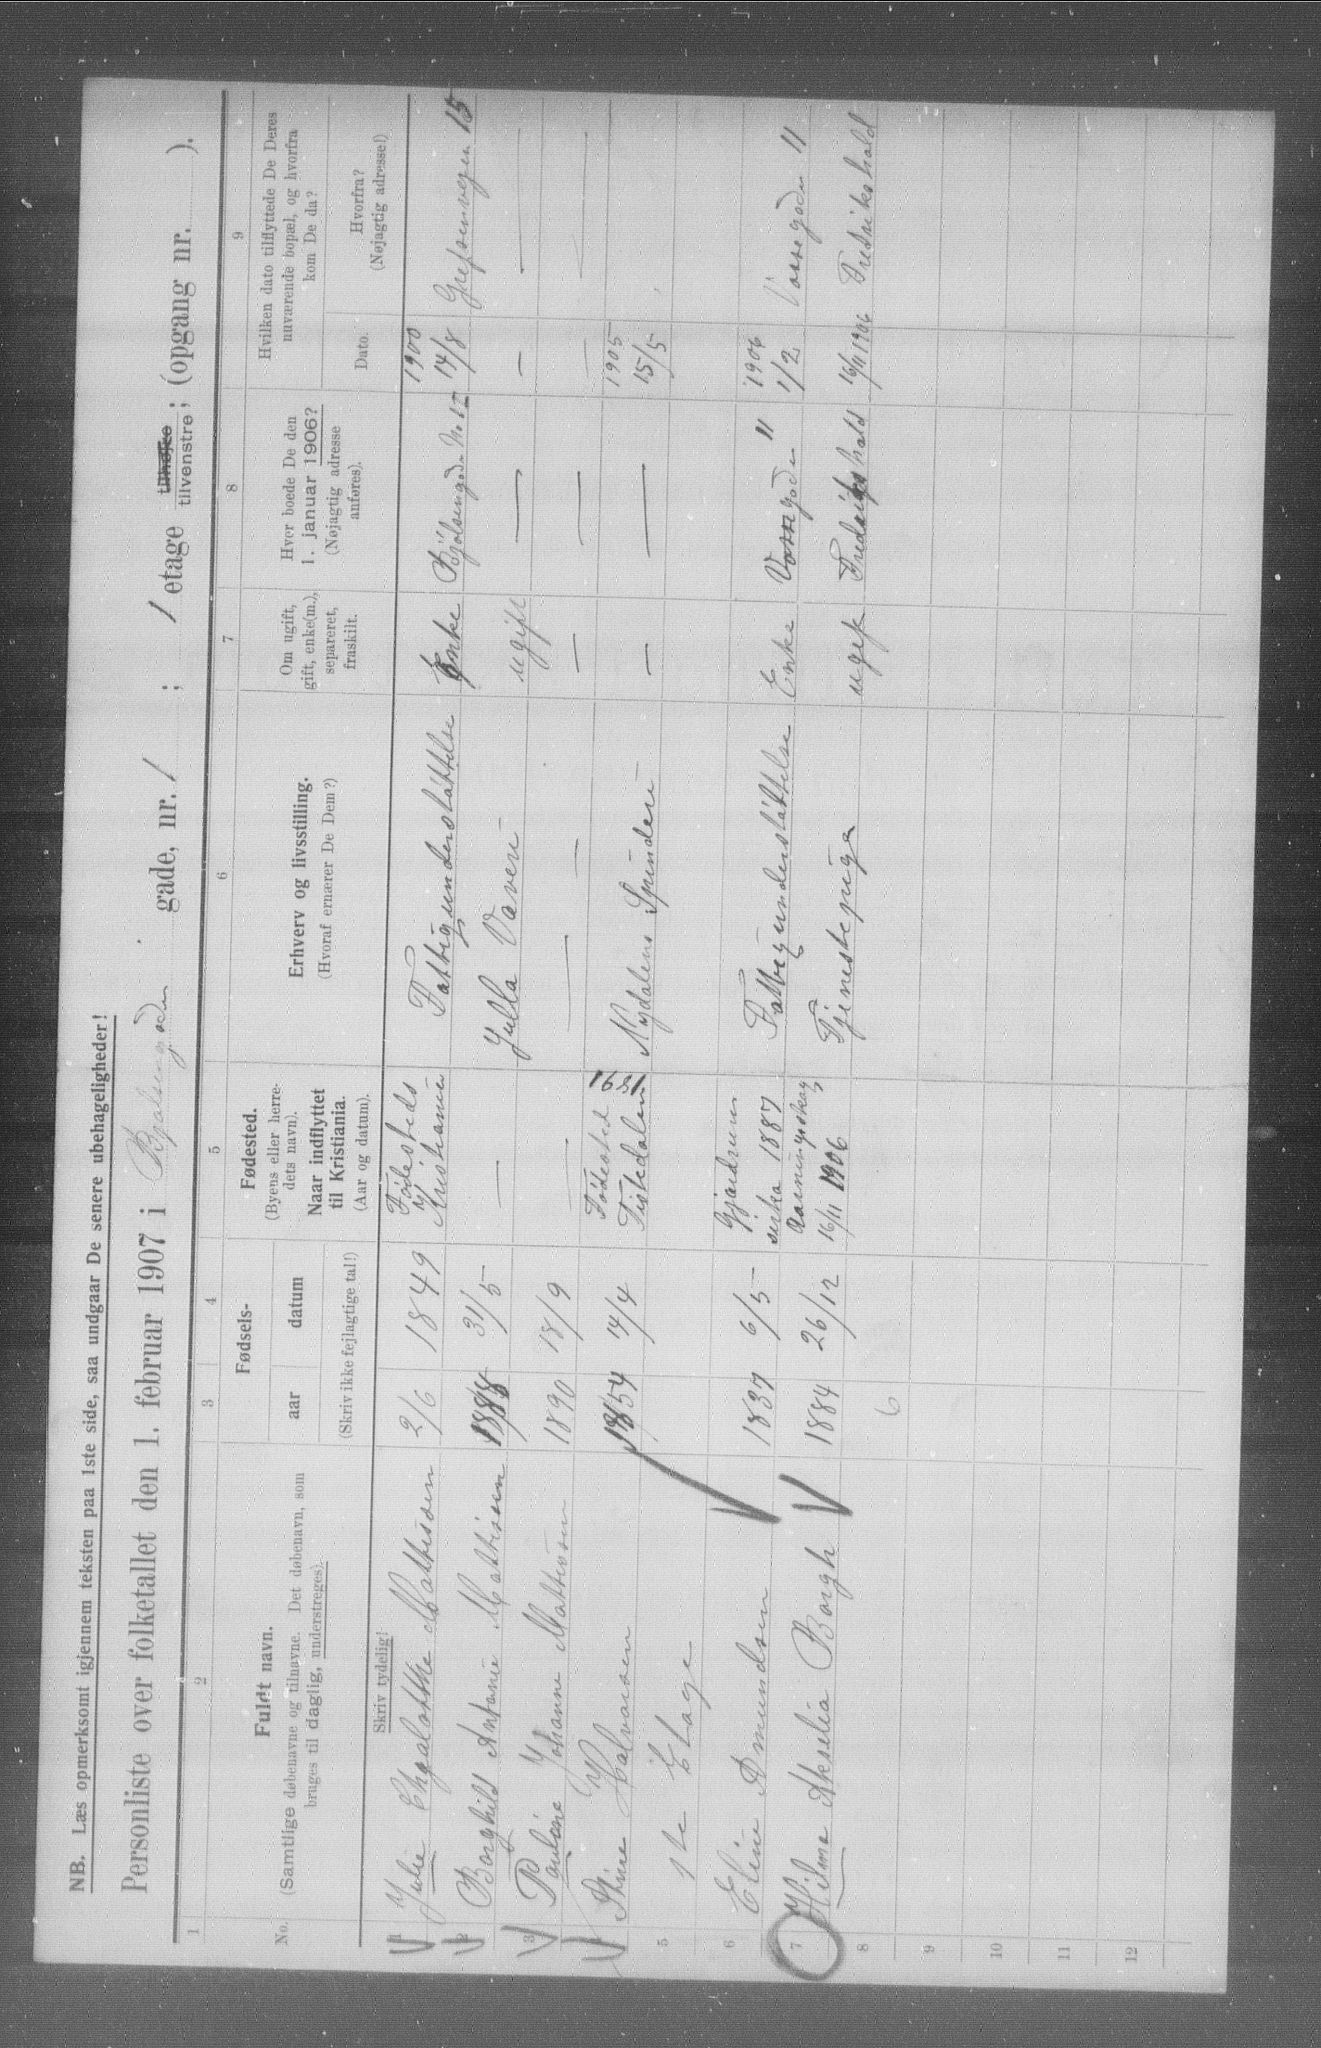 NB. Læs opmerksomt igjennem teksten paa 1ste side, saa undgaar De senere ubehageligheder!
Personliste over folketallet den 1. februar 1907 i Bjølsengaden gade, nr. 1 ; 1 etage tilhøjre tilvenstre ; (opgang nr. ).
1 2 3 4 5 6 7 8 9
No.
Fuldt navn.
(Samtlige døbenavne og tilnavne. Det døbenavn, som
bruges til daglig, understreges).
Skriv tydelig!
Fødsels-
aar datum
(Skriv ikke fejlagtige tal!)
Fødested.
(Byens eller herre-
dets navn).
Naar indflyttet
til Kristiania.
(Aar og datum).
Erhverv og livsstilling.
(Hvoraf ernærer De Dem?)
Om ugift,
gift, enke(m.),
separeret,
fraskilt.
Hvor boede De den
1. januar 1906?
(Nøjagtig adresse
anføres).
Hvilken dato tilflyttede De Deres
nuværende bopæl, og hvorfra
kom De da?
Dato.
Hvorfra?
(Nøjagtig adresse!)
1 Julie Mattisen 2/6 1849 Fødesteds Kristiania Fattigunderstøttelse Enke 1900 14/8 Grefsenvejen 15
2 Borghild Antonie Mattisen 1888 31/5 — Julla Væveri ugift — — —
3 Pauline Johanne Mattisen 1890 18/9 — — — — — — —
4 Halvorsen 1854 14/4 Fødested Tistedalen Nydalens Spinderi — — 1905 15/5
5 1ste Etage
6 Eline Amundsen 1837 6/5 1887 Fattigunderstøttelse Enke Vossegaden 11 1906 1/2 Vossegaden 11
7 Hilma Akselia Borgh 1884 26/12 16/11 1906 Tjenestepige ugift Fredrikshald 16/11 1906 Fredrikshald
8 6
9
10
11
12